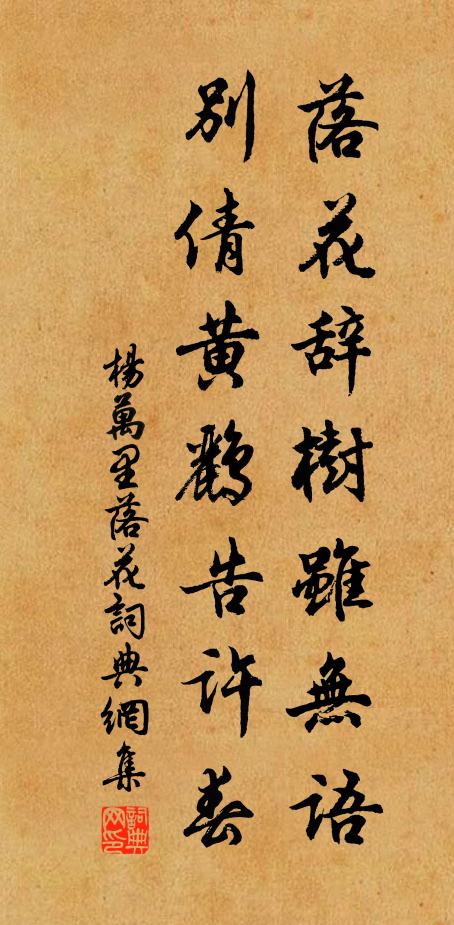 落花辞樹雖無語
別倩黄鸝告許春
楊萬里落花詞典網集
詞典网印